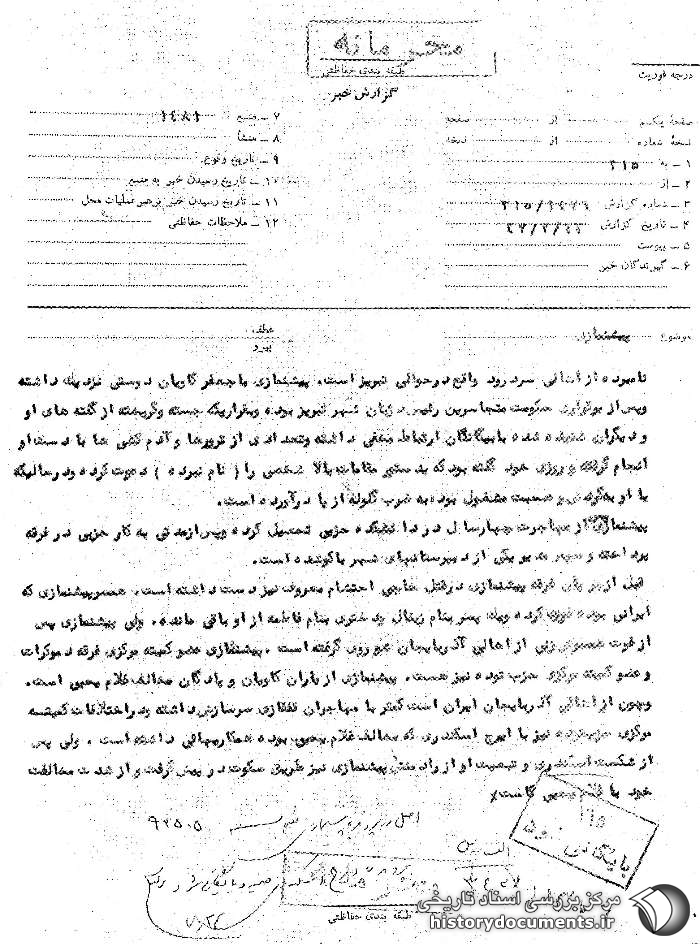 محرمانه
طبقه بندی حفاظتی
گزارش خبر
درجه فوریت
صفحهٔ یکم از صفحه
نسخهٔ شماره از نسخه
۱ ـ به ۳۱۵
۲ ـ از
۳ ـ شماره گزارش
۴ ـ تاریخ گزارش
۵ ـ پیوست
۶ ـ گیرندگان خبر
۷ ـ منبع ۱۴۸۱
۸ ـ منشأ
۹ ـ تاریخ وقوع
۱۰ ـ تاریخ رسیدن خبر به منبع
۱۱ ـ تاریخ رسیدن خبر برهبر عملیات محل
۱۲ ـ ملاحظات حفاظتی
موضوع پیشنمازی
عطف
پیرو
نامبرده از اهالی سردرود واقع در حوالی تبریز است. پیشنمازی با جعفر کاویان دوستی نزدیک داشته
وپس از برقراری حکومت متجاسرین رئیس زندان شهر تبریز بوده و بقراریکه جسته و گریخته از گفته های او
و دیگران شنیده شده با بیگانگان ارتباط مخفی داشته وتعدادی از ترورها و آدم کشی ها با دست او
انجام گرفته و روزی خود گفته بود که بدستور مقامات بالا شخصی را ( نام نبرده ) دعوت کرده و درحالیکه
با او بگردش و صحبت مشغول بوده به ضرب گلوله از پا درآورده است.
پیشنمازی از مهاجرت چهارسال در دانشکده حزبی تحصیل کرده وپس ازمدتی به کار حزبی در فرقه
پرداخته و سپس مدیر یکی از دبیرستانهای شهر باکو شده است.
قبل از جریان فرقه پیشنمازی درقتل حاجی احتشام معروف نیز دست داشته است. همسر پیشنمازی که
ایرانی بوده فوت کرده ویک پسر بنام زینال ودختری بنام فاطمه از او باقی مانده. ولی پیشنمازی پس
از فوت همسرش زنی از اهالی آذربایجان شوروی گرفته است. پیشنمازی عضو کمیته مرکزی فرقه دموکرات
و عضو کمیته مرکزی حزب توده نیز هست. پیشنمازی از یاران کاویان و پادگان مخالف غلام یحیی است.
وچون از اهالی آذربایجان ایران است کمتر با مهاجران قفقازی سرسازش داشته ودراختلافات کمیته
مرکزی حزب توده نیز با ایرج اسکندری که مخالف غلام یحیی بوده همکاریهائی داشته است. ولی پس
از شکست اسکندری و تبعیت او از رادمنش پیشنمازی نیز طریق سکوت در پیش گرفت و از شدت مخالفت
خود با غلام یحیی کاست
اصل در پرونده
بایگانی شود
طبقه بندی حفاظتی
مرکز بررسی اسناد تاریخی
historydocuments.ir